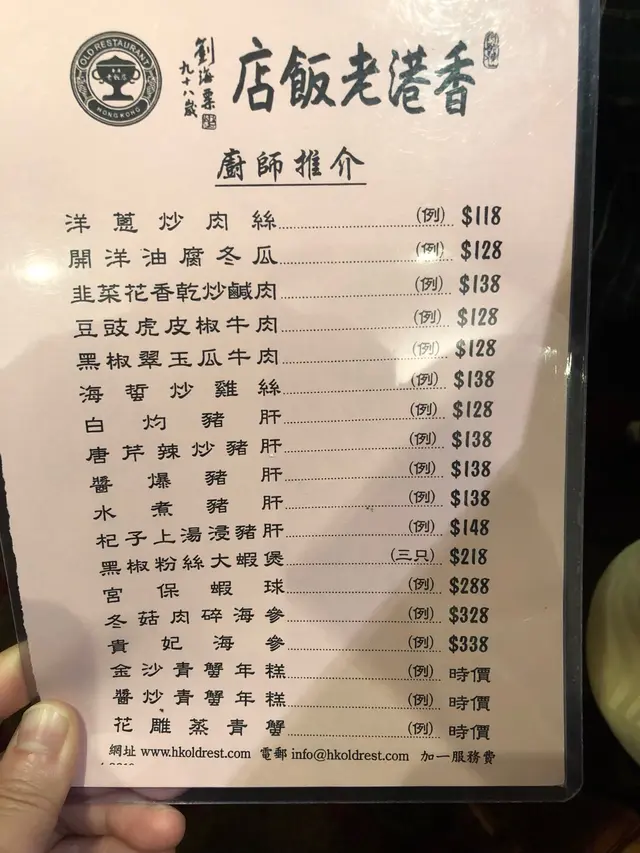 OLD RESTAURANT
HONG KONG
劉海粟
九十八歲
香港老飯店
廚師推介
洋蔥炒肉絲 (例) $118
開洋油腐冬瓜 (例) $128
韭菜花香乾炒鹹肉 (例) $138
豆豉虎皮椒牛肉 (例) $128
黑椒翠玉瓜牛肉 (例) $128
海蜇炒雞絲 (例) $138
白灼豬肝 (例) $128
唐芹辣炒豬肝 (例) $138
醬爆豬肝 (例) $138
水煮豬肝 (例) $138
杞子上湯浸豬肝 (例) $148
黑椒粉絲大蝦煲 (三只) $218
宮保蝦球 (例) $288
冬菇肉碎海參 (例) $328
貴妃海參 (例) $338
金沙青蟹年糕 (例) 時價
醬炒青蟹年糕 (例) 時價
花雕蒸青蟹 (例) 時價
網址 www.hkoldrest.com 電郵 info@hkoldrest.com 加一服務費